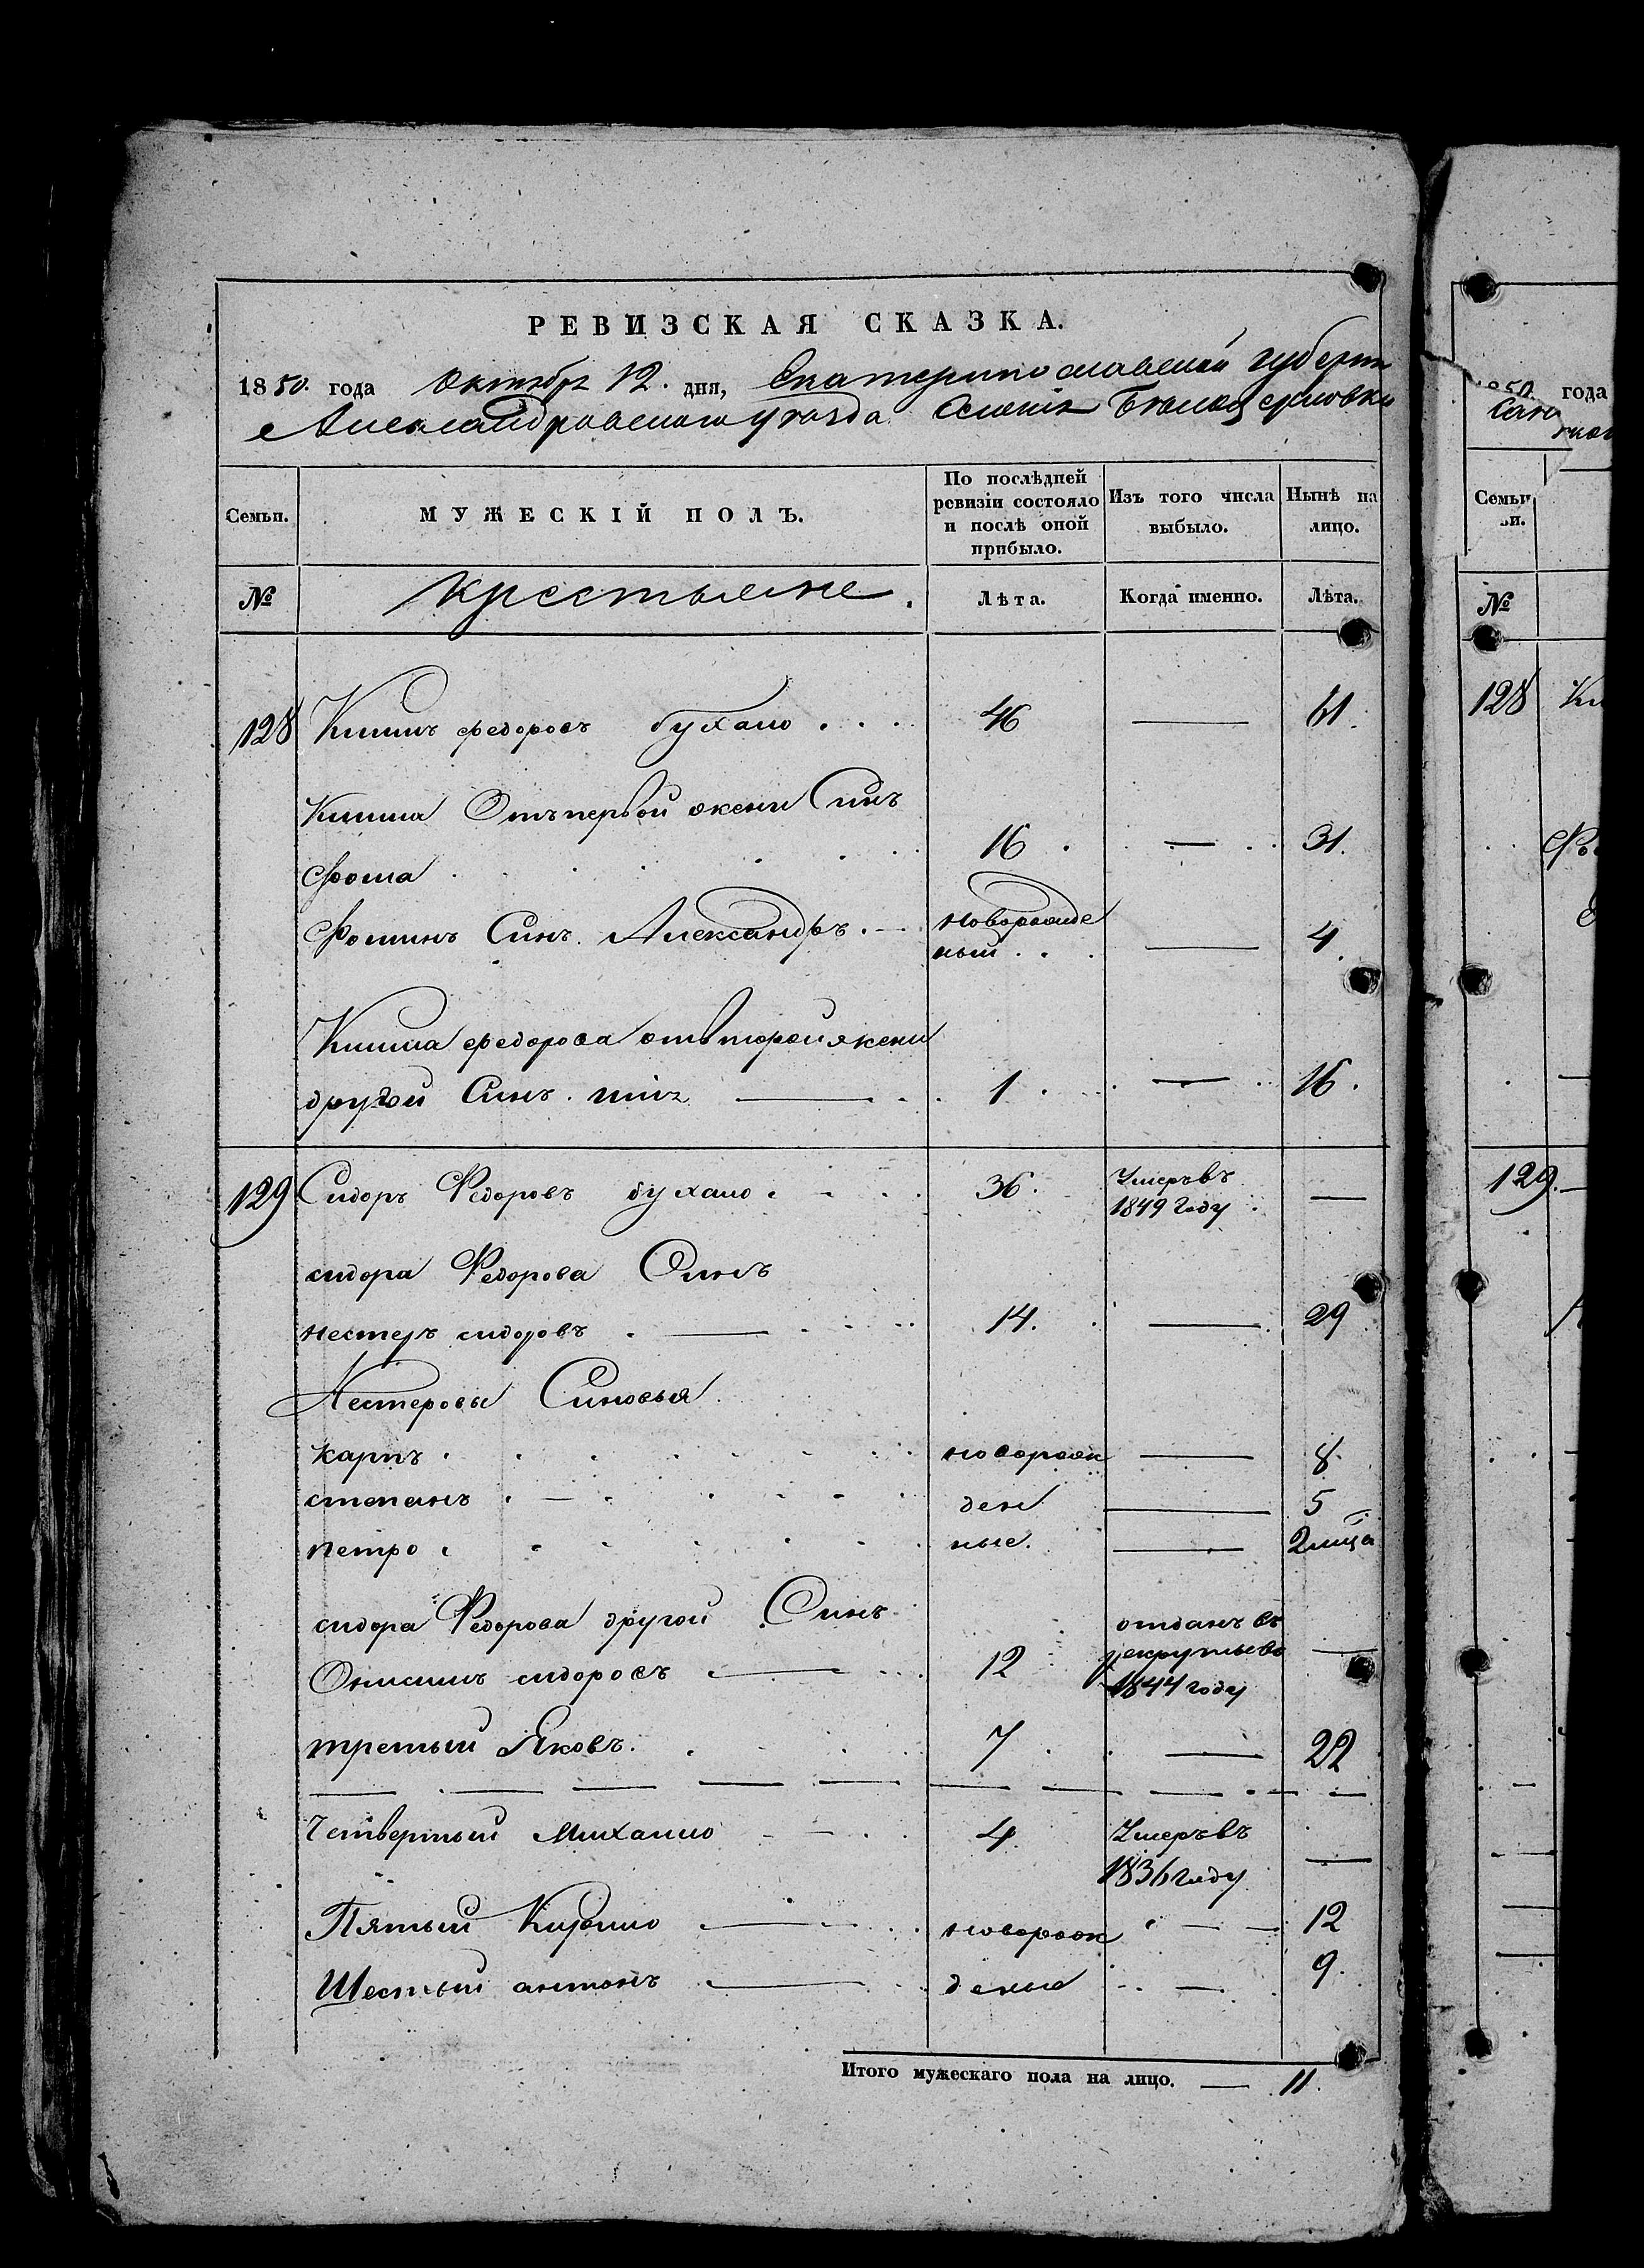 РЕВИЗСКАЯ СКАЗКА.
1850. года октября 12. дня, Екатеринославской губерни
Александровского уезда селения
Семьи.
МУЖЕСКІЙ ПОЛЪ.
По послѣдней ревизіи состояло и послѣ оной прибыло.
Изъ того числа выбыло.
Нынѣ на лицо.
№
крестьяне.
Лѣта.
Когда именно.
Лѣта.
128 федоровъ бухало . . . 46 — 61.
Отъ первой жени Синъ
Фома 16 . — 31.
Фоминъ Синъ. Александръ . — новорожде — 4.
ный . . .
федорова отвторой жени
другой Синъ. — 1 — 16.
129 Сидоръ Федоровъ бухало 36. Умеръвъ —
1849 году
сидора Федорова Синъ
нестеръ сидоровъ . — 14. — 29
Нестеровы Синовья.
карпъ новорож — 8.
степанъ ден — 5
петро ные. — 2 мца
сидора Федорова другой Синъ отданъ въ
Онисимъ сидоровъ — 12 рекрутыевъ —
1844 году
третый Яковъ. 7 — 22
Четвертый михаило 4. Умеръвъ
1836 году —
Пятый Кирило — новорож — 12
Шестый антонъ — деные — 9.
Итого мужескаго пола на лицо. — 11.
1850 года
Семьи.
№
128
129.